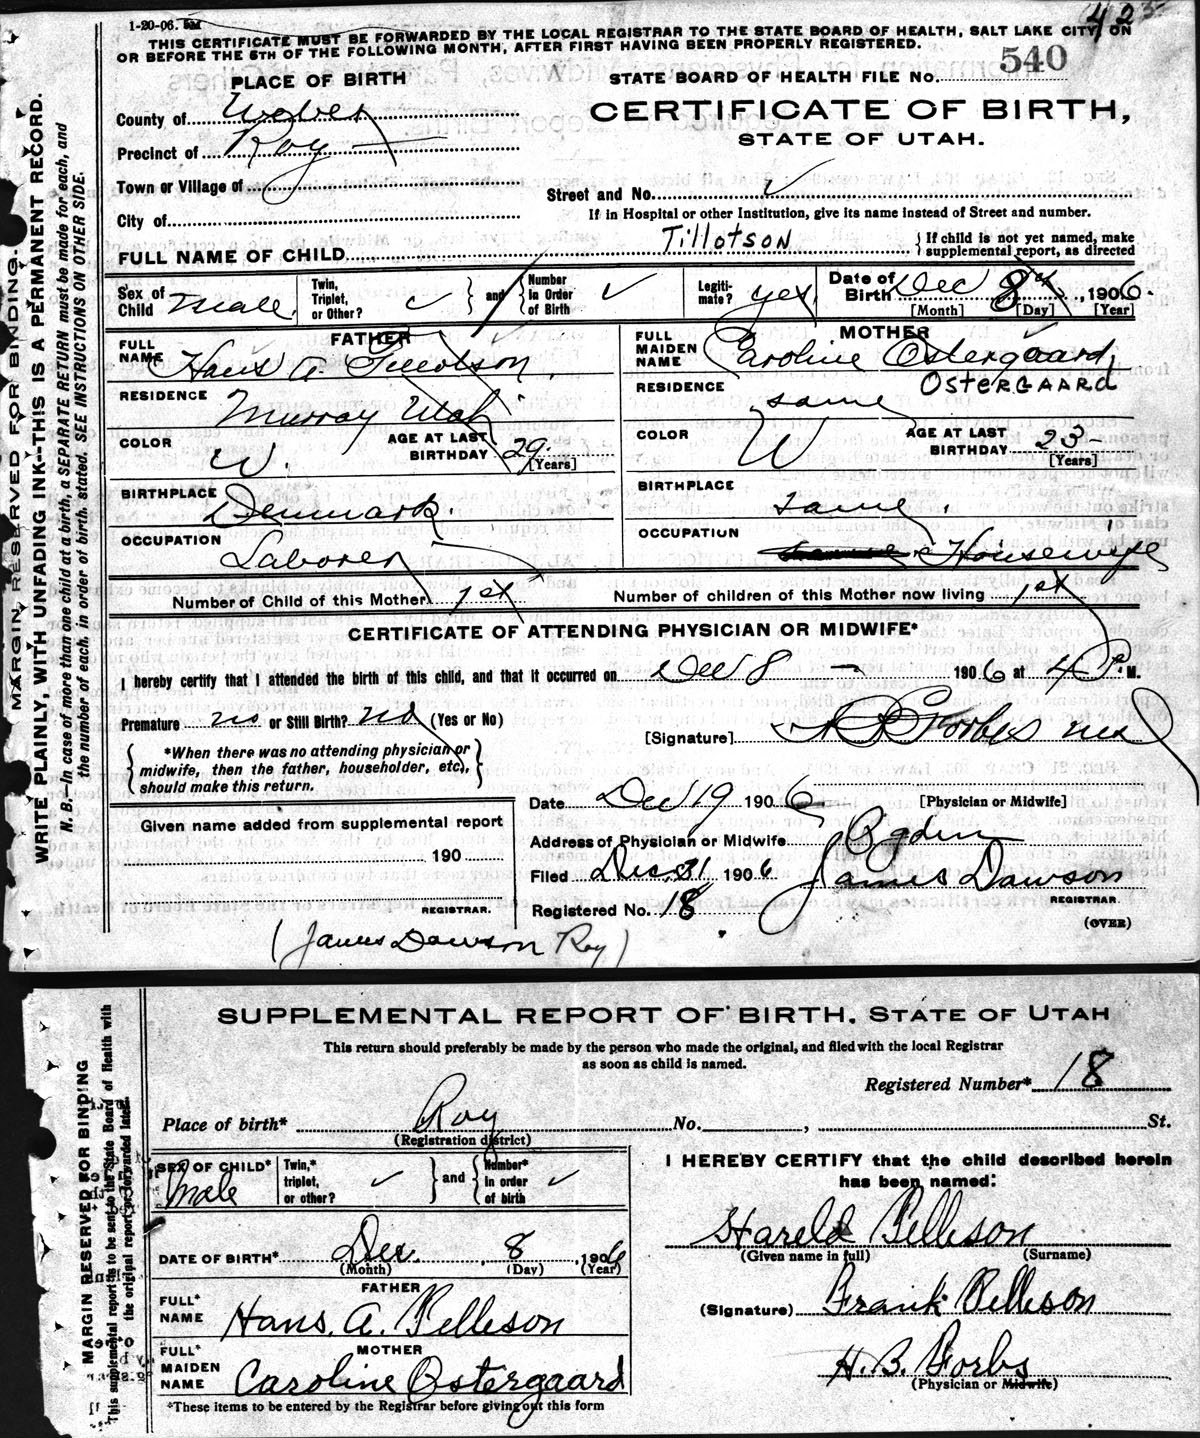 1-20-06.
THIS CERTIFICATE MUST BE FORWARDED BY THE LOCAL REGISTRAR TO THE STATE BOARD OF HEALTH, SALT LAKE CITY, ON
OR BEFORE THE 5TH OF THE FOLLOWING MONTH, AFTER FIRST HAVING BEEN PROPERLY REGISTERED.
PLACE OF BIRTH
STATE BOARD OF HEALTH FILE No. 540
County of Weber
CERTIFICATE OF BIRTH,
STATE OF UTAH.
Precinct of Roy
Town or Village of
Street and No.
City of
If in Hospital or other Institution, give its name instead of Street and number.
FULL NAME OF CHILD Tillotson
If child is not yet named, make
supplemental report, as directed
Sex of Child Male
Twin, Triplet, or Other?
and
Number in Order of Birth
Legitimate? yes
Date of Birth Dec 8th, 1906.
[Month] [Day] [Year]
FATHER
FULL NAME Hans A. Tillotson
RESIDENCE Murray Utah
COLOR W.
AGE AT LAST BIRTHDAY 29
[Years]
BIRTHPLACE Denmark.
OCCUPATION Laborer
MOTHER
FULL MAIDEN NAME Caroline Ostergaard
OSTERGAARD
RESIDENCE same
COLOR W
AGE AT LAST BIRTHDAY 23
[Years]
BIRTHPLACE same
OCCUPATION Housewife
Number of Child of this Mother 1st
Number of children of this Mother now living 1st
CERTIFICATE OF ATTENDING PHYSICIAN OR MIDWIFE*
I hereby certify that I attended the birth of this child, and that it occurred on Dec 8 1906 at 4 P.M.
Premature no or Still Birth? no (Yes or No)
[Signature] Forbes MD
*When there was no attending physician or
midwife, then the father, householder, etc.,
should make this return.
Date Dec 19 1906
[Physician or Midwife]
Given name added from supplemental report
190
REGISTRAR.
Address of Physician or Midwife Ogden
Filed Dec. 31 1906
James Dawson
REGISTRAR.
Registered No. 18
(OVER)
(James Dawson Roy)
MARGIN RESERVED FOR BINDING.
WRITE PLAINLY, WITH UNFADING INK--THIS IS A PERMANENT RECORD.
N. B.—In case of more than one child at a birth, a SEPARATE RETURN must be made for each, and
the number of each, in order of birth, stated. SEE INSTRUCTIONS ON OTHER SIDE.
SUPPLEMENTAL REPORT OF BIRTH, STATE OF UTAH
This return should preferably be made by the person who made the original, and filed with the local Registrar
as soon as child is named.
Registered Number* 18
Place of birth* Roy No. , St.
(Registration district)
SEX OF CHILD* Male
Twin,* triplet, or other?
and
Number* in order of birth
I HEREBY CERTIFY that the child described herein
has been named:
Harold Pelleson
(Given name in full) (Surname)
DATE OF BIRTH* Dec. 8, 1906
(Month) (Day) (Year)
FATHER
FULL* NAME Hans. A. Pelleson
(Signature) Frank Pelleson
MOTHER
FULL* MAIDEN NAME Caroline Ostergaard
H. B. Forbs
(Physician or Midwife)
*These items to be entered by the Registrar before giving out this form
MARGIN RESERVED FOR BINDING
This supplemental report to be sent to the State Board of Health with
the original report or forwarded later.